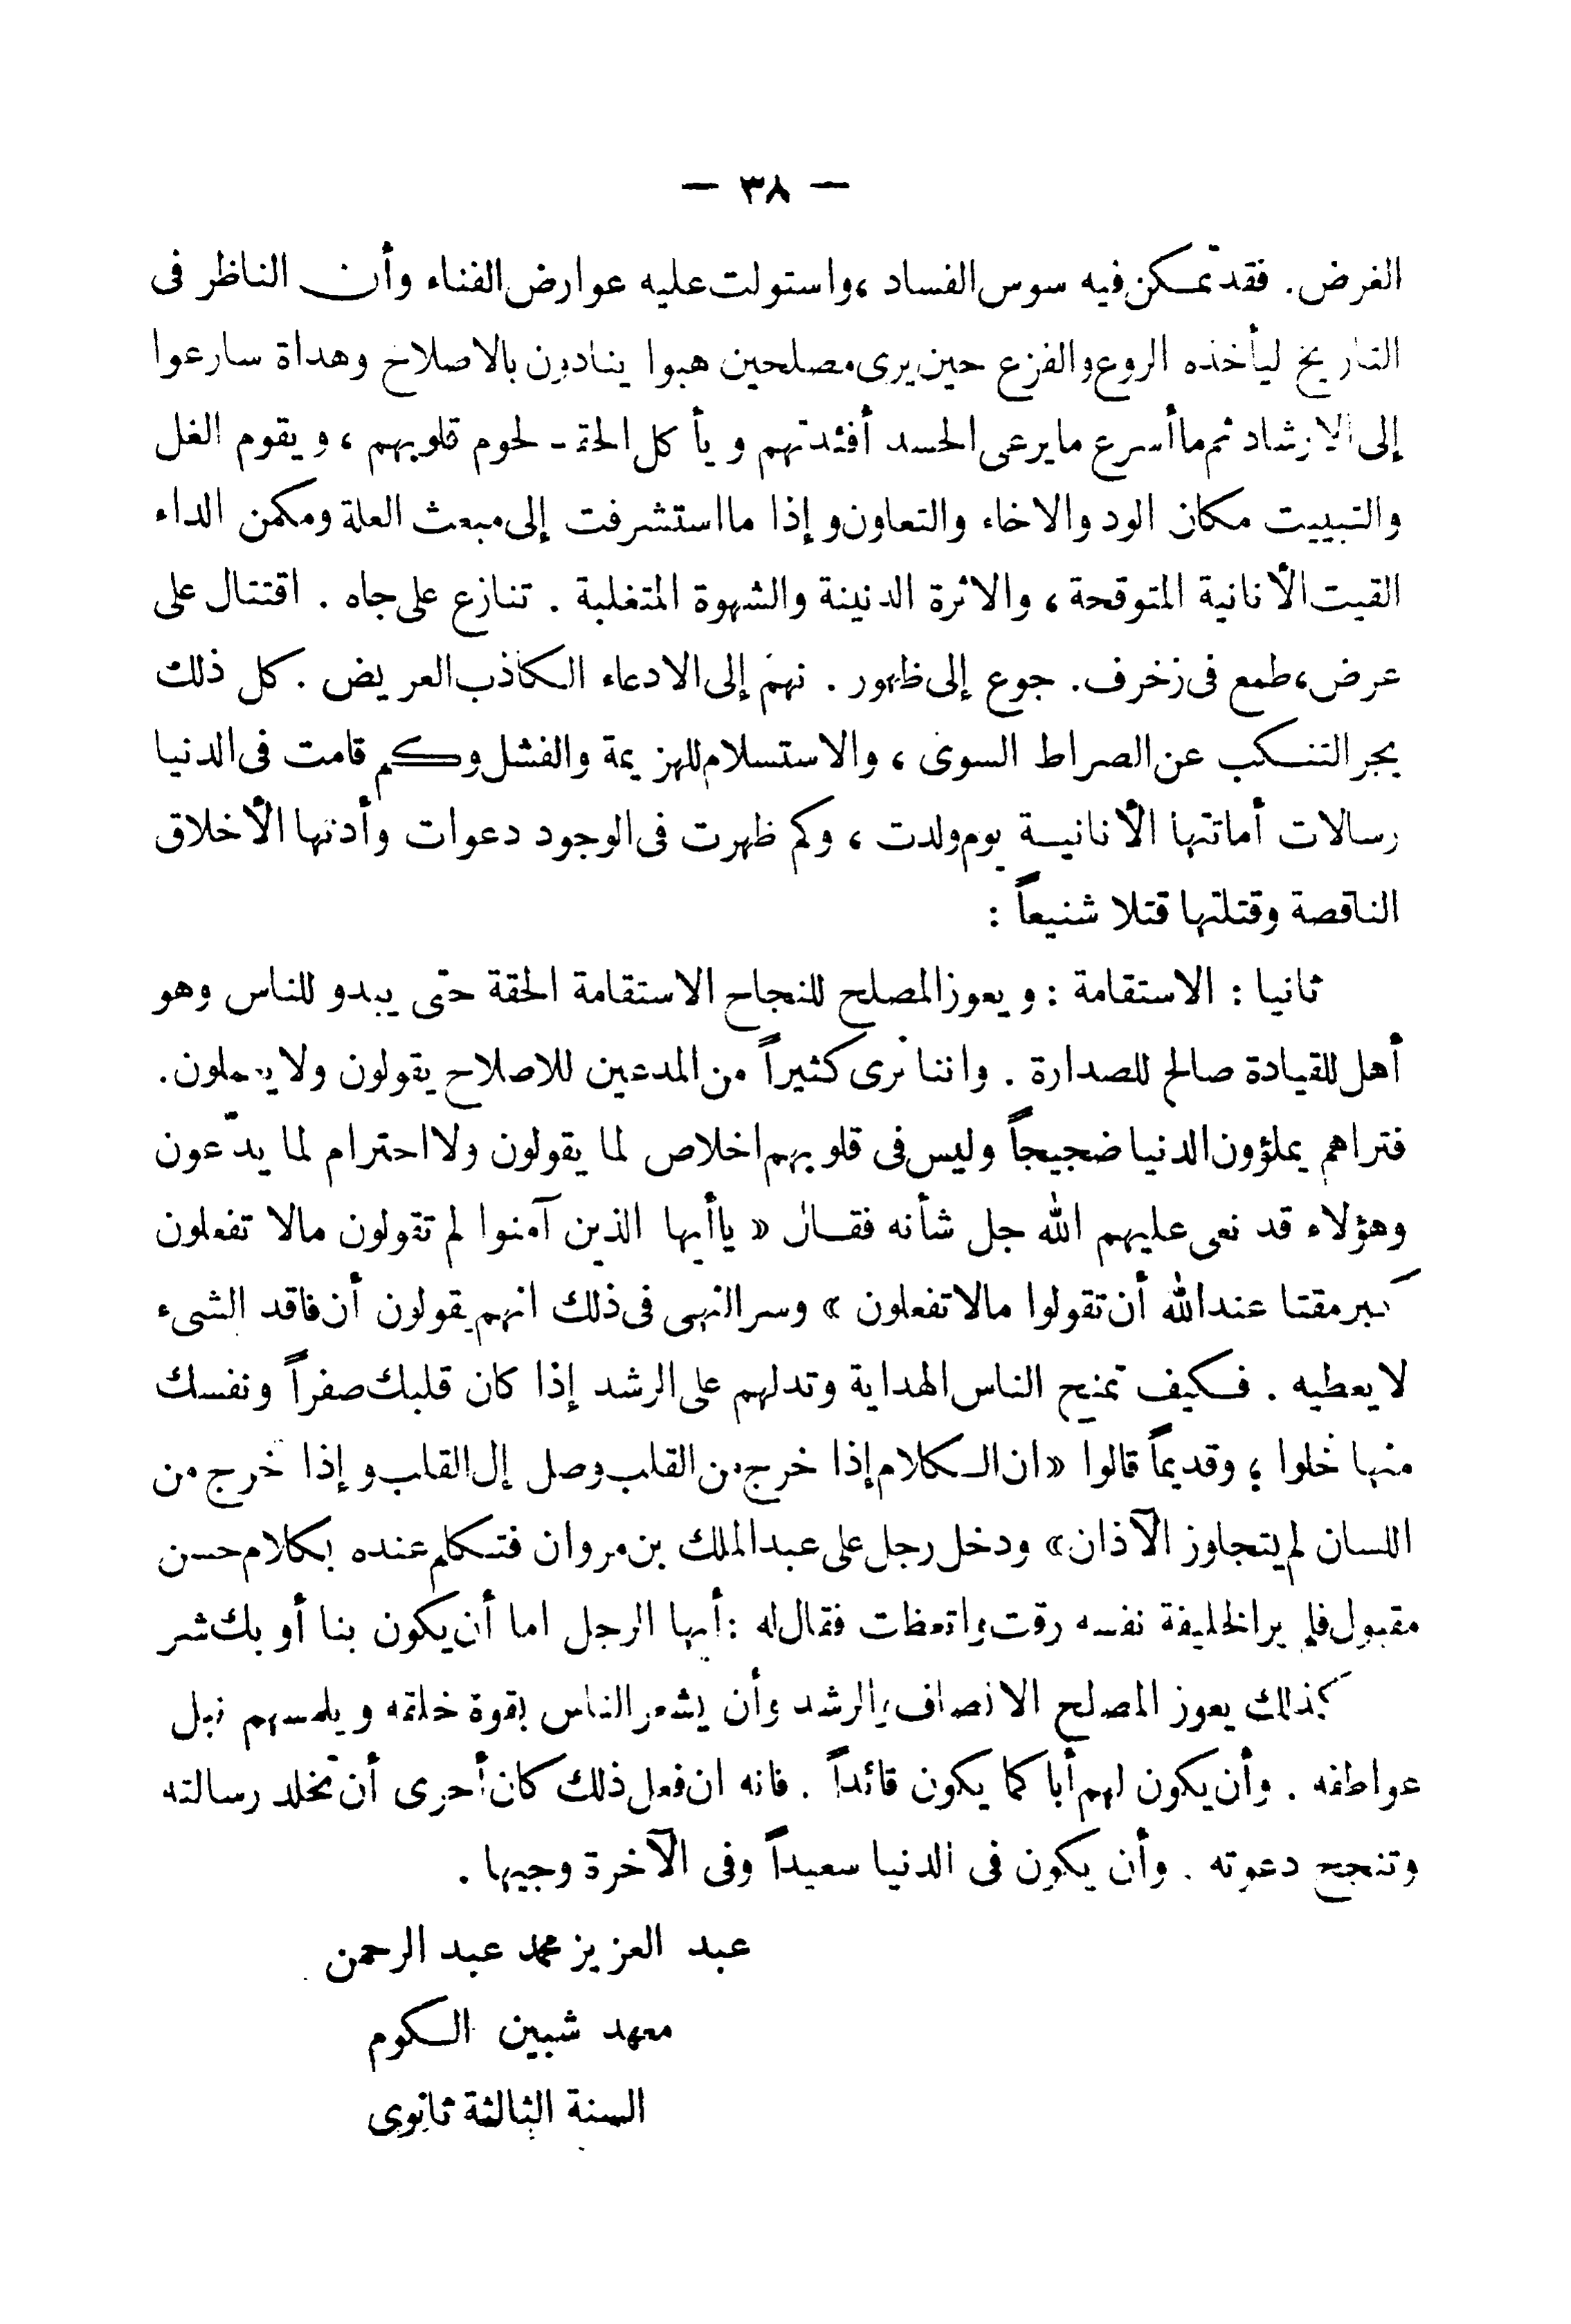 — ٣٨ —
الغرض. فقد تمكن فيه سوس الفساد ، واستولت عليه عوارض الفناء وأن الناظر فى
التاريخ ليأخذه الروع والفزع حين يرى مصلحين هبوا ينادون بالاصلاح وهداة سارعوا
إلى الارشاد ثم ما أسرع ما يرعى الحسد أفئدتهم ويأكل الحقد لحوم قلوبهم ، ويقوم الغل
والتبييت مكان الود والاخاء والتعاون وإذا ما استشرفت إلى مبعث العلة ومكمن الداء
القيت الأنانية المتوقحة ، والاثرة الدنيئة والشهوة المتغلبة . تنازع على جاه . اقتتال على
عرض ، طمع فى زخرف . جوع إلى ظهور . نهم إلى الادعاء الكاذب العريض . كل ذلك
يجر التنكب عن الصراط السوى ، والاستسلام للهزيمة والفشل وكم قامت فى الدنيا
رسالات أماتتها الأنانية يوم ولدت ، وكم ظهرت فى الوجود دعوات وأدتها الأخلاق
الناقصة وقتلتها قتلا شنيعاً :
ثانيا : الاستقامة : ويعوز المصلح للنجاح الاستقامة الحقة حتى يبدو للناس وهو
أهل للقيادة صالح للصدارة . واننا نرى كثيراً من المدعين للاصلاح يقولون ولا يعملون.
فتراهم يملؤون الدنيا ضجيجاً وليس فى قلوبهم اخلاص لما يقولون ولا احترام لما يدّعون
وهؤلاء قد نعى عليهم الله جل شأنه فقال « ياأيها الذين آمنوا لم تقولون مالا تفعلون
كبر مقتا عند الله أن تقولوا مالا تفعلون » وسر النهى فى ذلك انهم يقولون أن فاقد الشىء
لا يعطيه . فكيف تمنح الناس الهداية وتدلهم على الرشد إذا كان قلبك صفراً ونفسك
منها خلوا ؛ وقديماً قالوا « ان الكلام إذا خرج من القلب وصل إل القلب وإذا خرج من
اللسان لم يتجاوز الآذان » ودخل رجل على عبد الملك بن مروان فتكلم عنده بكلام حسن
مقبول فلم ير الخليفة نفسه رقت واتعظت فقال له : أيها الرجل اما أن يكون بنا أو بك شر
كذلك يعوز المصلح الانصاف والرشد وأن يشعر الناس بقوة خلقه ويلمسهم نبل
عواطفه . وأن يكون لهم أبا كما يكون قائداً . فانه ان فعل ذلك كان أحرى أن تخلد رسالته
وتنجح دعوته . وأن يكون فى الدنيا سعيداً وفى الآخرة وجيها .
عبد العزيز محمد عبد الرحمن
معهد شبين الكوم
السنة الثالثة ثانوى